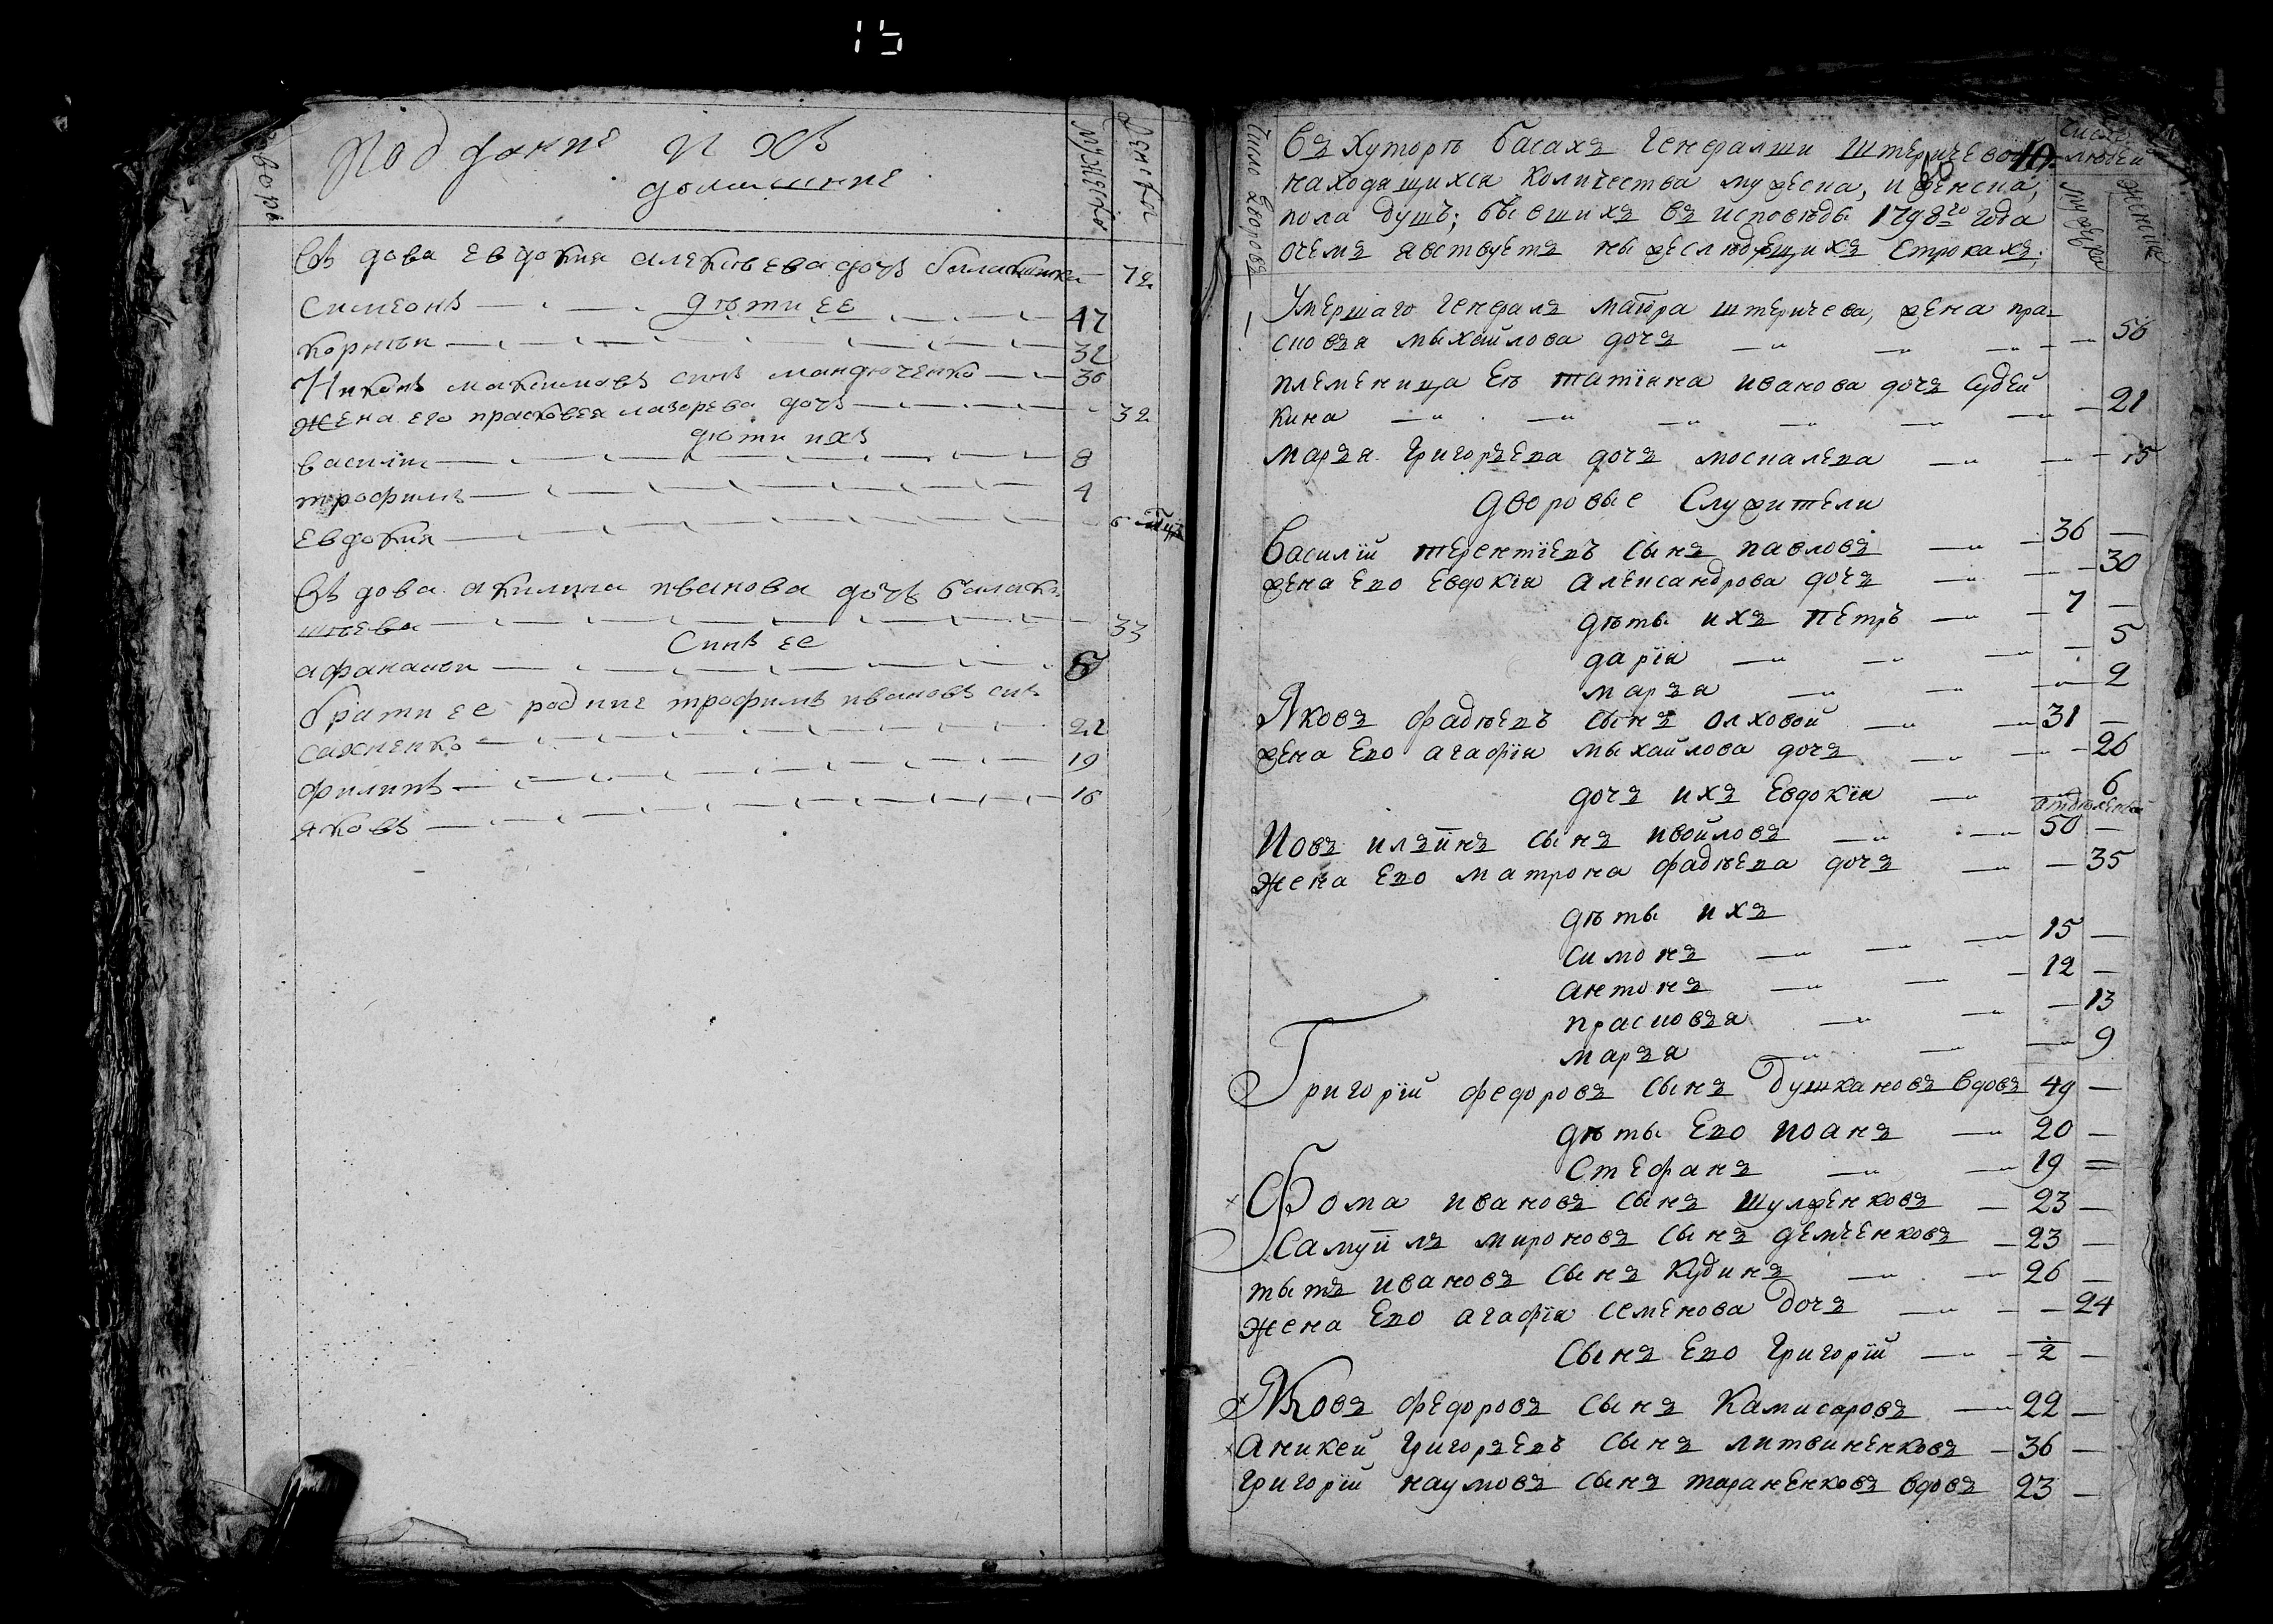 15
дворы
Подданние ихъ
домашние
мужеска
женска
Въдова евдокия алексѣева дочъ балакшина 72
дѣти ее
симеонъ 47
корнѣи 32
Никонъ максимовъ синъ мандюченко 36
жена его прасковея лазорева дочъ 32
дѣти ихъ
василіи 8
трофимъ 4
евдокия 6
Въдова акилина иванова дочъ балакъ
шѣева 33
Синъ ее
афанасѣи
брати ее родние трофимъ ивановъ синъ
сахненко 22
филипъ 19
яковъ 16
Число дворовъ
Въ хуторѣ басахъ генералши штеричевой
находящихся количества мужеска, и женска,
пола душъ; бывшихъ въ исповѣды 1798го года
очемъ явствуетъ ныжеслюдующихъ строкахъ;
число людей
мужеска
женска
1 Умершаго генералъ маіора штеричева, жена пра-
сковъя мыхайлова дочъ 56
племеница Ея татіана иванова дочъ судей
кина 21
маръя григоръева дочъ москалева 15
Дворовые Служители
Василій терентіевъ сынъ павловъ 36
жена Его Евдокія александрова дочъ 30
дѣты ихъ петръ 7
дарія 5
маръя 2
Яковъ фадѣевъ сынъ олховой 31
жена Его агафія мыхайлова дочъ 26
дочъ ихъ Евдокіа 6
Иовъ илъинъ сынъ ивойловъ 50
жена Его матрона фадѣева дочъ 35
дѣты ихъ
симонъ 15
антонъ 12
прасковъя 13
маръя 9
Григорій федоровъ сынъ Душкановъ вдовъ 49
дѣты Его иоанъ 20
Стефанъ 19
Фома ивановъ сынъ шулженковъ 23
Самуилъ мироновъ сынъ демченковъ 23
тытъ ивановъ сынъ кудинъ 26
жена Его агафія семенова дочъ 24
Сынъ Его григорій 2
Яковъ федоровъ сынъ камисаровъ 22
аникей григоръевъ сынъ литвиненковъ 36
григорій наумовъ сынъ тараненковъ вдовъ 23